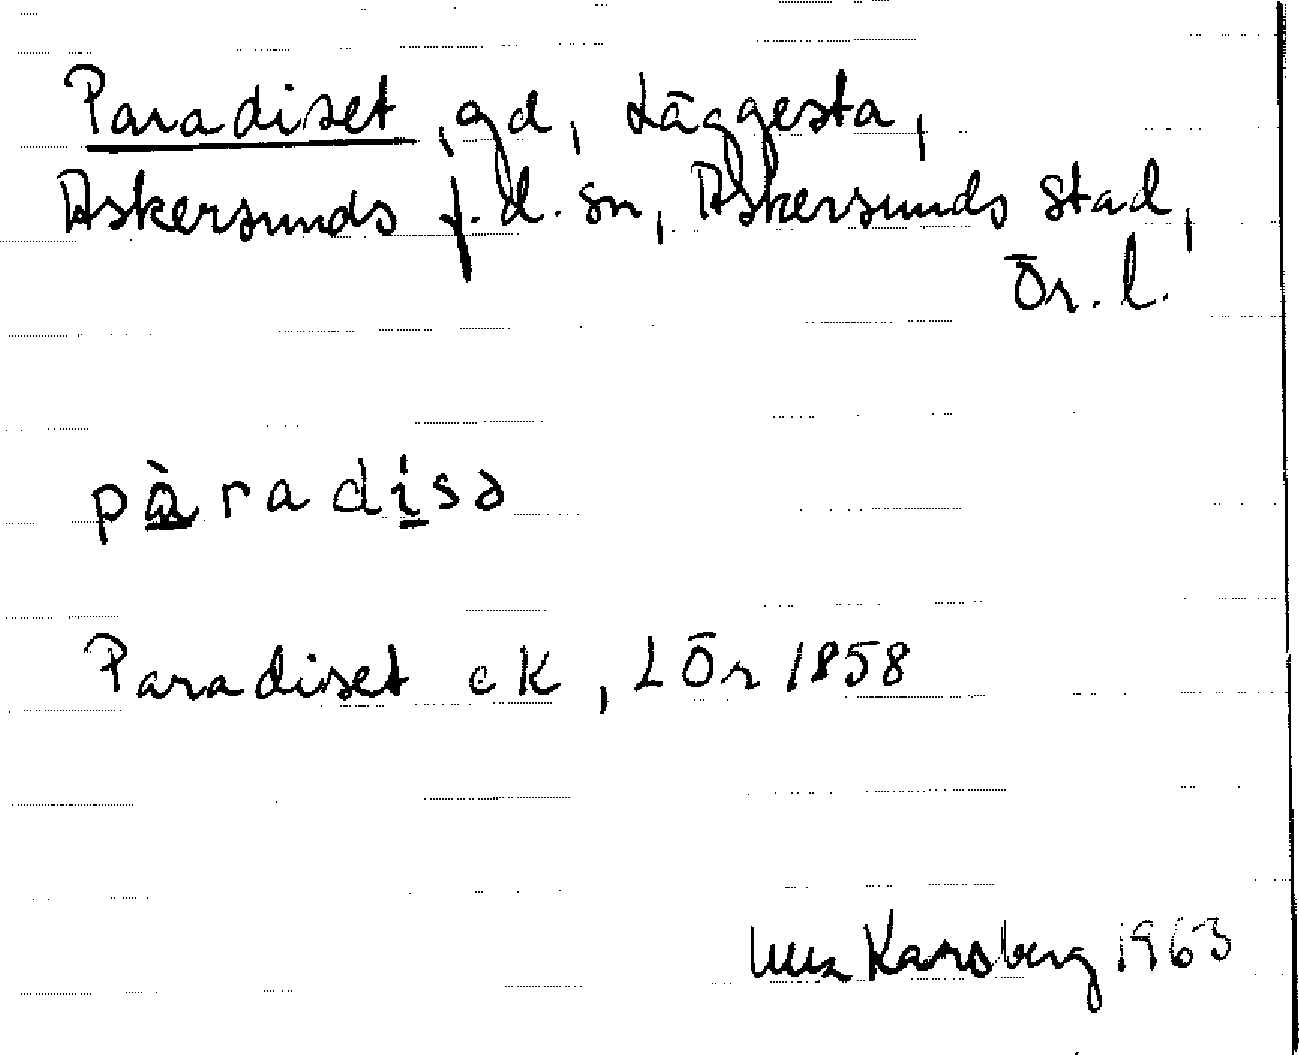 Paradiset, gd, Läggesta,
Askersunds f.d. sn, Askersunds stad,
Ör. l.
pàradisə
Paradiset ek, LÖr 1858
Karsberg 1963